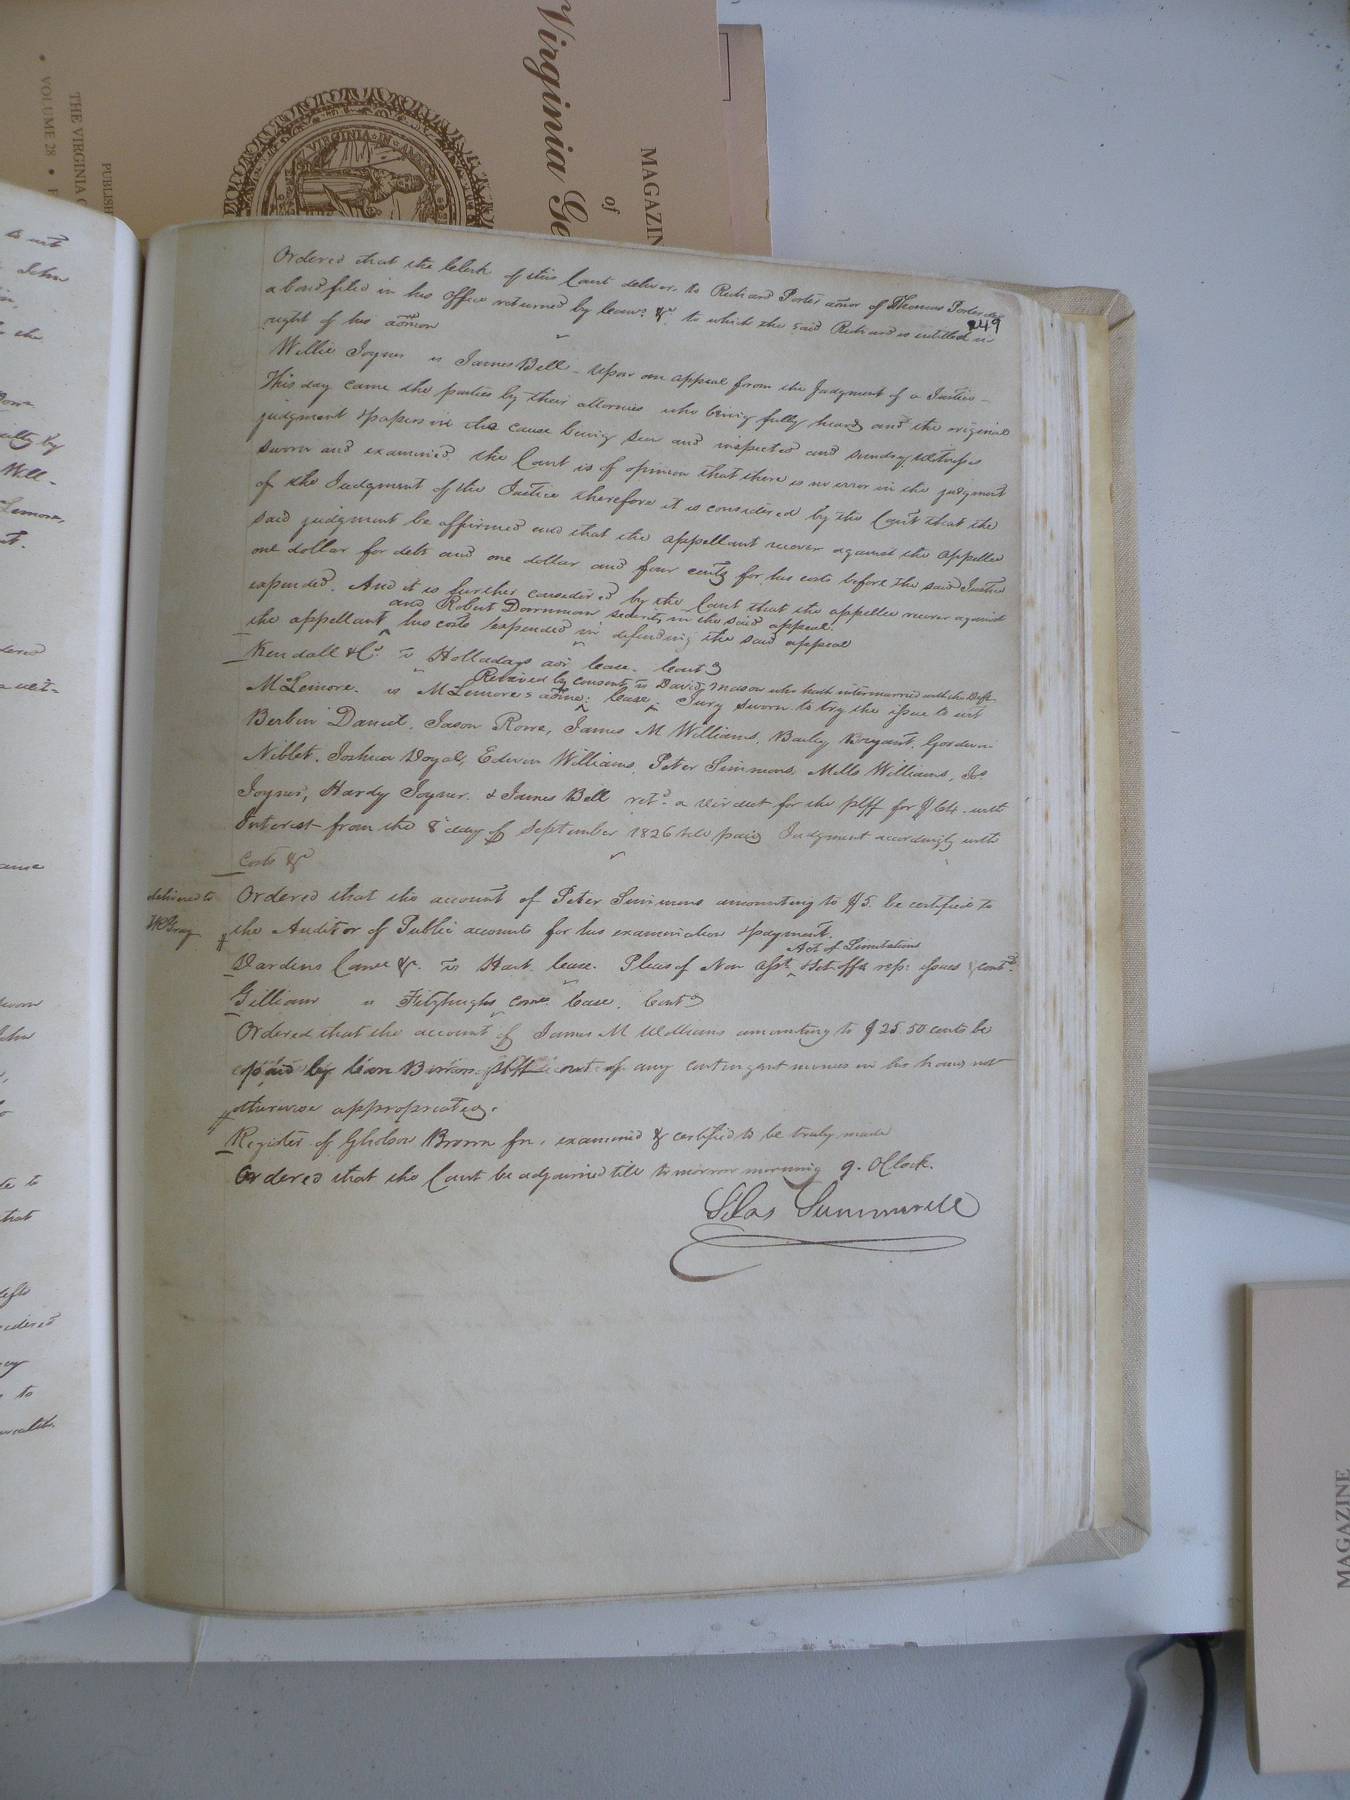 Virginia Ge
MAGAZIN
of
VIRGINIA
THE VIRGINIA
VOLUME 28
PUBLISH
249
Ordered that the Clerk of this Court deliver to Richard Porter admor of Thomas Porter dec
a bond filed in his office returned by &c to which the said Richard is entitled in
right of his admon
Willie Joyner vs James Bell - Upon an appeal from the Judgment of a Justice -
This day came the parties by their attornies who being fully heard and the original
judgment & papers in this cause being seen and inspected and sundry witnesses
sworn and examined the Court is of opinion that there is no error in the judgment
of the Judgment of the Justice therefore it is considered by the Court that the
said judgment be affirmed and that the appellant recover against the appellee
one dollar for debt and one dollar and four cents for his costs before the said Justice
expended. And it is further considered by the Court that the appellee recover against
and Robert Doornman security in the said appeal.
the appellant his costs expended in defending the said appeal
Kendall & Co vs Holladays adr Case. Contd
Revived by consent vs David Mason who hath intermarried with the Deft
McLemore. vs McLemore's Case. Jury sworn to try the issue to wit
Berbin Daniel, Jason Rowe, James M Williams, Bailey Bryant, Goodwin
Niblet, Joshua Doyal, Edwin Williams, Peter Simmons, Mills Williams, Jos
Joyner, Hardy Joyner & James Bell retd a verdict for the plff for with
Interest from the 8th day of September 1826 till paid Judgment accordingly with
Costs &c
delivered to
Gray
Ordered that the account of Peter Simmons amounting to $5. be certified to
the Auditor of Public accounts for his examination & payment.
Act of Limitations
Vardens &c. vs Hart Case. Pleas of Non Asst Set-offs rep: issues & contd.
Gilliam vs Fitzhughs Case. Contd
Ordered that the account of James M Williams amounting to $25.50 cents be
paid by out of any contingent monies in his hands not
otherwise appropriated.
Register of Gholson Brown fn. examined & certified to be truly made
Ordered that the Court be adjourned till to morrow morning 9. OClock.
Silas Summerell
to wit
John
the
Will -
Lemore,
to
that
to
MAGAZINE